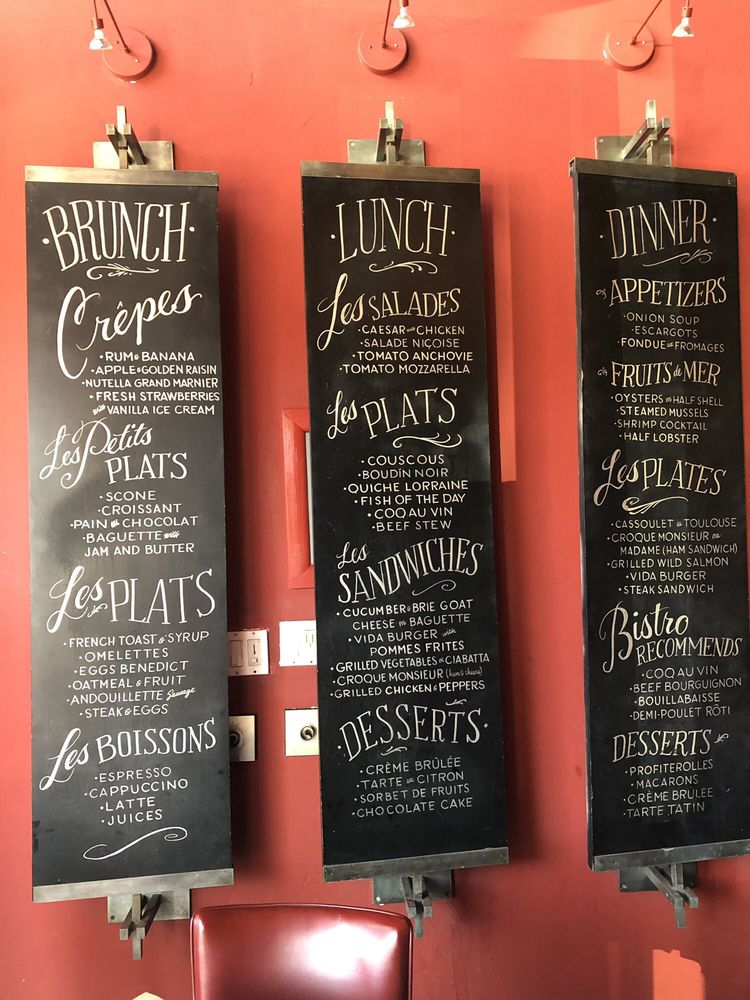 ·BRUNCH·
Crêpes
·RUM & BANANA
·APPLE & GOLDEN RAISIN
·NUTELLA GRAND MARNIER
·FRESH STRAWBERRIES
with VANILLA ICE CREAM
Les Petits
PLATS
·SCONE
·CROISSANT
·PAIN au CHOCOLAT
·BAGUETTE with
JAM AND BUTTER
Les PLATS
·FRENCH TOAST & SYRUP
·OMELETTES
·EGGS BENEDICT
·OATMEAL & FRUIT
·ANDOUILLETTE Sausage
·STEAK & EGGS
Les BOISSONS
·ESPRESSO
·CAPPUCCINO
·LATTE
·JUICES
·LUNCH·
Les SALADES
·CAESAR with CHICKEN
·SALADE NIÇOISE
·TOMATO ANCHOVIE
·TOMATO MOZZARELLA
Les PLATS
·COUSCOUS
·BOUDIN NOIR
·QUICHE LORRAINE
·FISH OF THE DAY
·COQ AU VIN
·BEEF STEW
Les
SANDWICHES
·CUCUMBER & BRIE GOAT
CHEESE on BAGUETTE
·VIDA BURGER with
POMMES FRITES
·GRILLED VEGETABLES on CIABATTA
·CROQUE MONSIEUR (ham & cheese)
·GRILLED CHICKEN & PEPPERS
·DESSERTS·
·CRÈME BRÛLÉE
·TARTE au CITRON
·SORBET DE FRUITS
·CHOCOLATE CAKE
·DINNER·
APPETIZERS
·ONION SOUP
·ESCARGOTS
·FONDUE aux FROMAGES
FRUITS de MER
·OYSTERS on HALF SHELL
·STEAMED MUSSELS
·SHRIMP COCKTAIL
·HALF LOBSTER
Les PLATES
·CASSOULET de TOULOUSE
·CROQUE MONSIEUR ou
MADAME (HAM SANDWICH)
·GRILLED WILD SALMON
·VIDA BURGER
·STEAK SANDWICH
Bistro
RECOMMENDS
·COQ AU VIN
·BEEF BOURGUIGNON
·BOUILLABAISSE
·DEMI-POULET RÔTI
DESSERTS
·PROFITEROLLES
·MACARONS
·CRÈME BRULEE
·TARTE TATIN